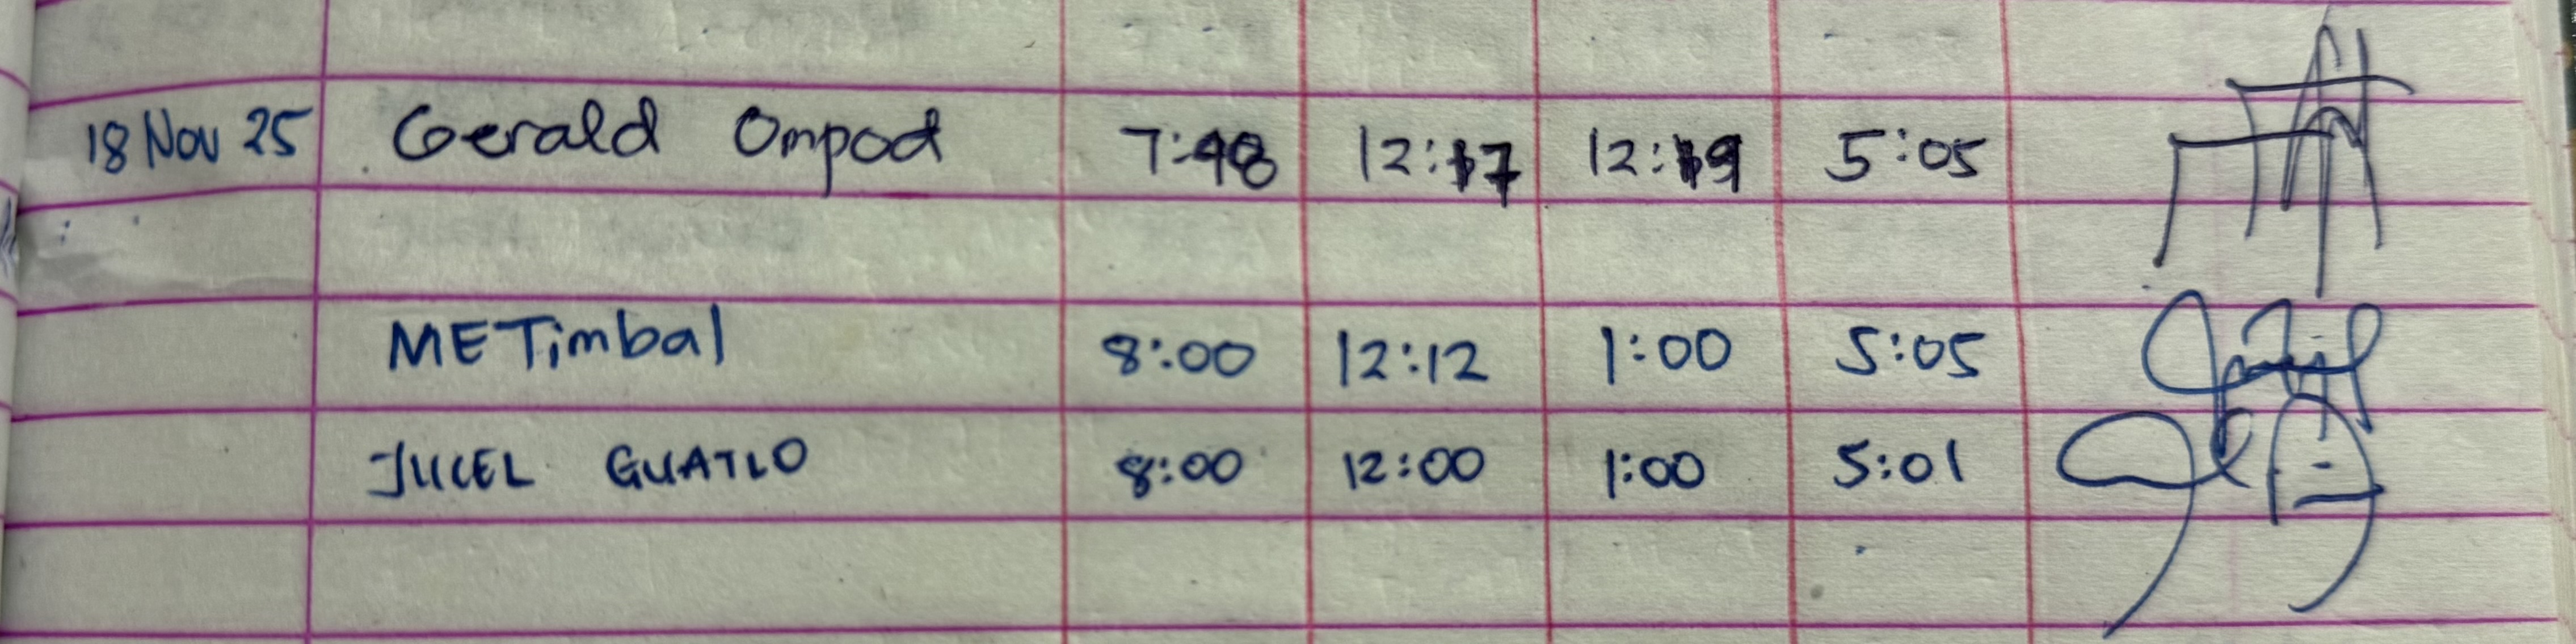 18 Nov 25 Gerald Ompod 7:48 12:17 12:19 5:05
METimbal 8:00 12:12 1:00 5:05
JUCEL GUATLO 8:00 12:00 1:00 5:01